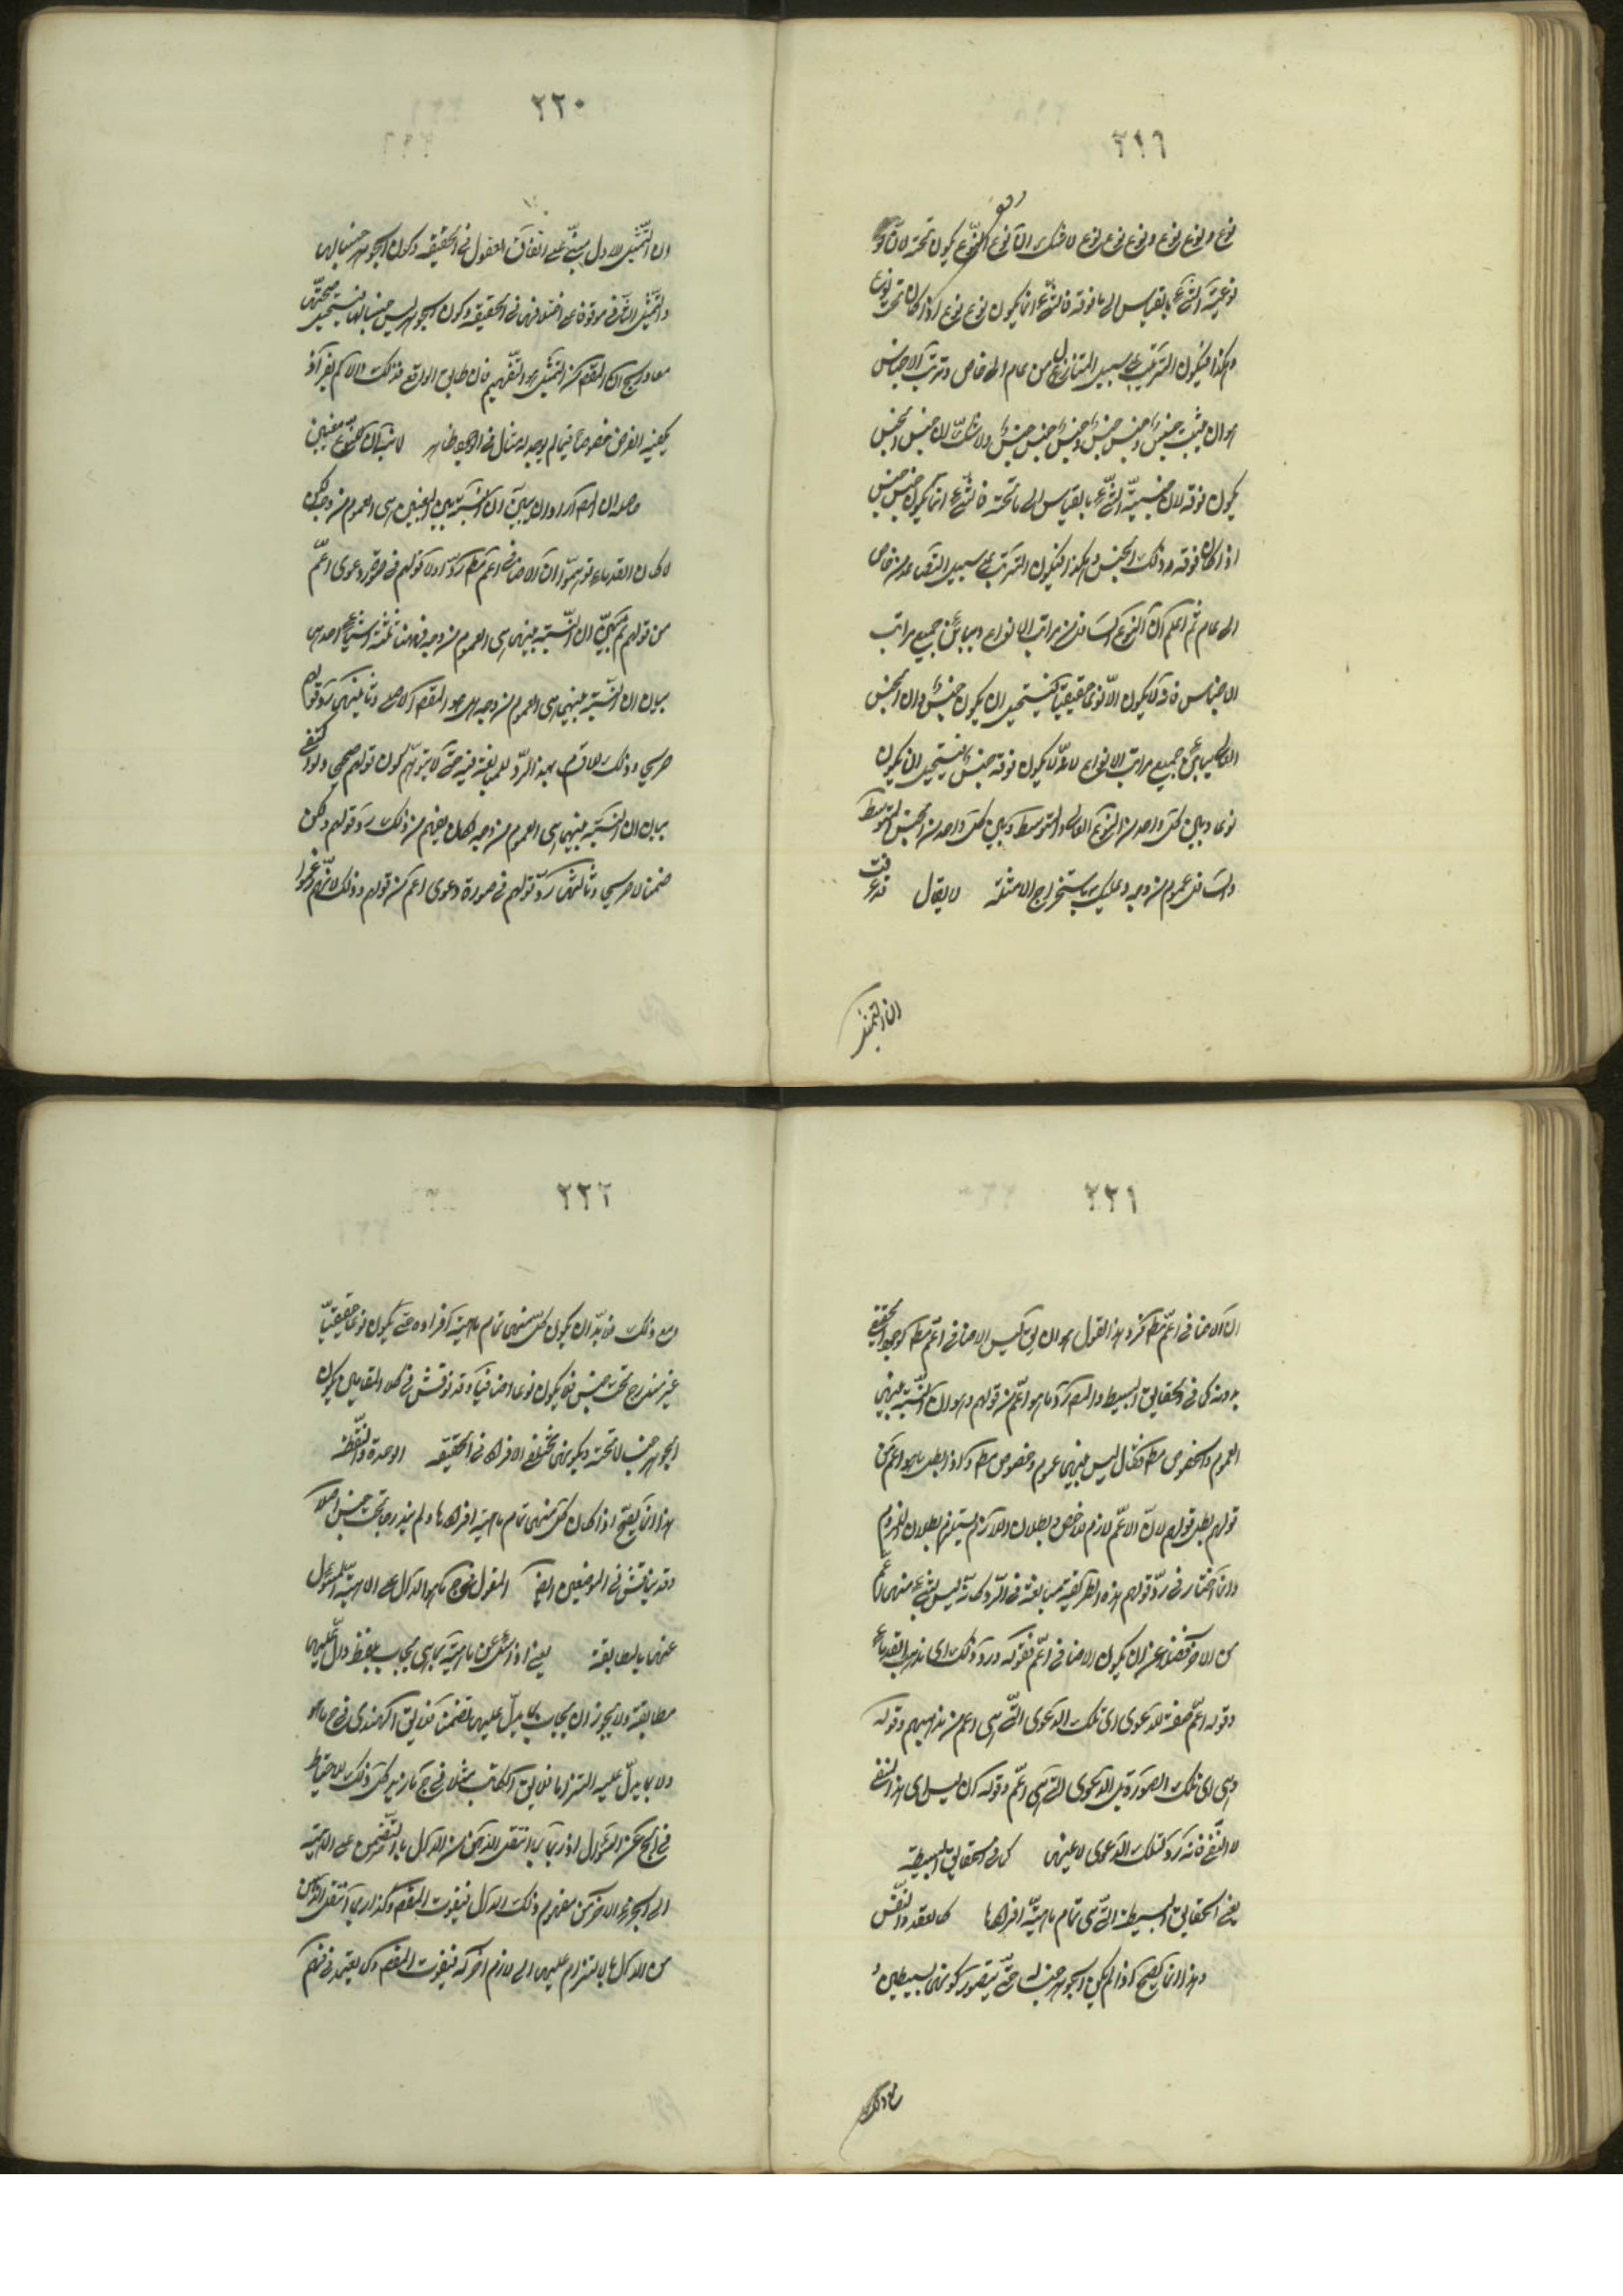 ٢١٩
نوع ونوع نوع ونوع نوع نوع لا شك ان نوع النوع يكون تحته لان
نوعية الشيء بالقياس الى ما فوقه فالشيء انما يكون نوع نوع اذا كان تحت نوع
وهكذا فيكون الترتيب على سبيل التنازل من عام الى خاص وترتب الاجناس
هو ان يثبت جنس وجنس جنس وجنس جنس جنس ولا شك ان جنس الجنس
يكون فوقه لان جنسية الشيء بالقياس الى ما تحته فالشيء انما يكون جنس جنس
اذا كان فوقه ذلك الجنس وهكذا فيكون الترتب على سبيل التصاعد من خاص
الى عام ثم اعلم ان النوع السافل من مراتب الانواع يباين جميع مراتب
الاجناس فانه لا يكون الا نوعا حقيقيا فيستحيل ان يكون جنسا وان الجنس
العالي يباين جميع مراتب الانواع لانه لا يكون فوقه جنس فيستحيل ان يكون
نوعا وبين كل واحد من النوع العالي والمتوسط وبين كل واحد من الجنس المتوسط
والسافل عموم من وجه وعليك باستخراج الامثلة لا يقال قد عرفت
ان التمثيل
٢٢٠
ان التمثيل الاول مبني على اتفاق العقول في الحقيقة وكون الجوهر جنسا لها
والتمثيل الثاني موقوف على اختلافها في الحقيقة وكون الجوهر ليس جنسا لها فيستحيل صحتهما
معا وسيجئ ان المقصود من التمثيل هو التفهيم فان طابق الواقع فذلك والا لم يضر اذ
يكفيه الفرض خصوصا فيما لم يوجد له مثال في الوجود ظاهر لانب ان للنوع معنيين
حاصله ان المصر اراد ان يبين ان النسبة بين المعنيين هي العموم من وجه لكن
لما كان القدماء توهموا ان الاضافي اعم مطلقا رد اولا قولهم في صورة دعوى اعم
من قولهم ثم بين ان النسبة بينهما هي العموم من وجه فههنا ثلثة اشياء احدها
بيان ان النسبة بينهما هي العموم من وجه وهو المقصود الاصلي وثانيها رد قولهم
صريحا وذلك لما قدم بهذا الرد للمبالغة فيه حتى لا يتوهم كون قولهم صحيحا ولو اكتفى
ببيان ان النسبة بينهما هي العموم من وجه لكان يفهم من ذلك رد قولهم ولكن
ضمنا لا صريحا وثالثها رد قولهم في صورة دعوى اعم من قولهم وذلك لانهم زعموا
٢٢١
ان الاضافي اعم مطلقا فرد هذا القول هو ان يق ليس الاضافي اعم مطلقا لوجود الحقيقي
بدونه كما في الحقايق البسيطة والمصر رد ما هو اعم من قولهم وهو ان النسبة بينهما
العموم والخصوص مطلقا فقال ليس بينهما عموم وخصوص مطلقا واذا بطل ما هو اعم من
قولهم بطل قولهم لان الاعم لازم للاخص وبطلان اللازم يستلزم بطلان الملزوم
وانما اختار في رد قولهم هذه الطريقة مبالغة في الرد كانه ليس شيء منهما اعم
من الاخر فضلا عن ان يكون الاضافي اعم فقوله ورد ذلك اى مذهب القدماء
وقوله اعم صفة للدعوى اى تلك الدعوى التي هي اعم من مذهبهم وقوله
وهي اى تلك الصورة بل الدعوى التي هي اعم وقوله ان ليس اى هذا النفي
لا النفي فانه رد لتلك الدعوى لا عينها كما في الحقايق البسيطة
يعني الحقايق البسيطة التي هي تمام ماهية افرادها كالعقد والنفس
وهذا انما يصح اذا لم يكن الجوهر جنسا له حتى يتصور كونهما بسيطين
مع ذلك
٢٢٢
ومع ذلك فلا بد ان يكون كل منهما تمام ماهية افراده حتى يكون نوعا حقيقيا
غير مندرج تحت جنس فلا يكون نوعا اضافيا وقد نوقش في كلا المقامين بكون
الجوهر جنسا لما تحته وبكونهما مختلف الافراد في الحقيقة الوحدة والنقطة
هذا انما يصح اذا كان كل منهما تمام ماهية افرادها ولم يندرجا تحت جنس اصلا
وقد يناقش في الموضعين ايضا المقول في جواب ما هو الدال على الماهية المسئول
عنها بالمطابقة يعني اذا سئل عن ماهية بما هي يجاب بلفظ دال عليها
مطابقة ولا يجوز ان يجاب بما يدل عليها تضمنا فلا يق الهندى في ج ما هو
ولا بما يدل عليه التزاما فلا يق الكاتب مثلا في ج ما زيد كل ذلك للاحتياط
في الجواب عن السؤال اذ ربما انتقل الذهن من الدال بالتضمن على الماهية
الى الجزء الاخر من مفهوم ذلك الدال فيفوت المقصود وكذا ربما انتقل الذهن
من الدال بالالتزام عليها الى لازم اخر له فيفوت المقصود ولا يعتمد في فهم